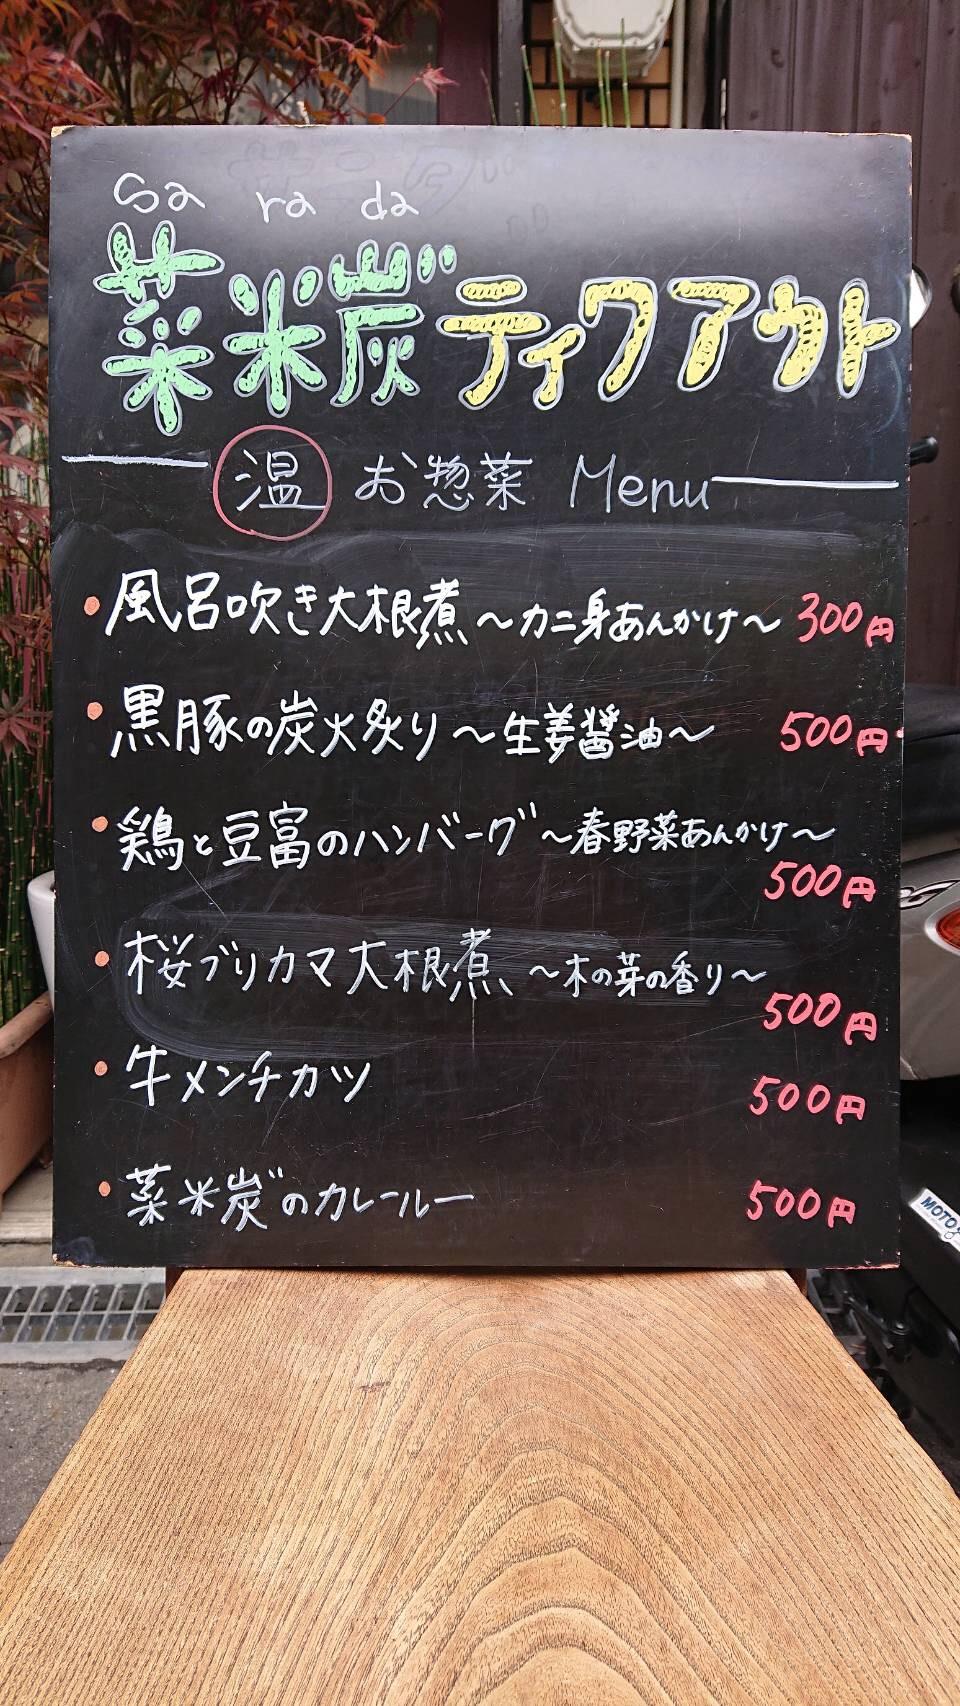 Sa ra da
菜米炭゛ティクアウト
温 お惣菜 Menu
・風呂吹き大根煮 〜カニ身あんかけ〜 300円
・黒豚の炭火炙り 〜生姜醤油〜 500円
・鶏と豆富のハンバーグ 〜春野菜あんかけ〜
500円
・桜ブリカマ大根煮 〜木の芽の香り〜
500円
・牛メンチカツ 500円
・菜米炭゛のカレールー 500円